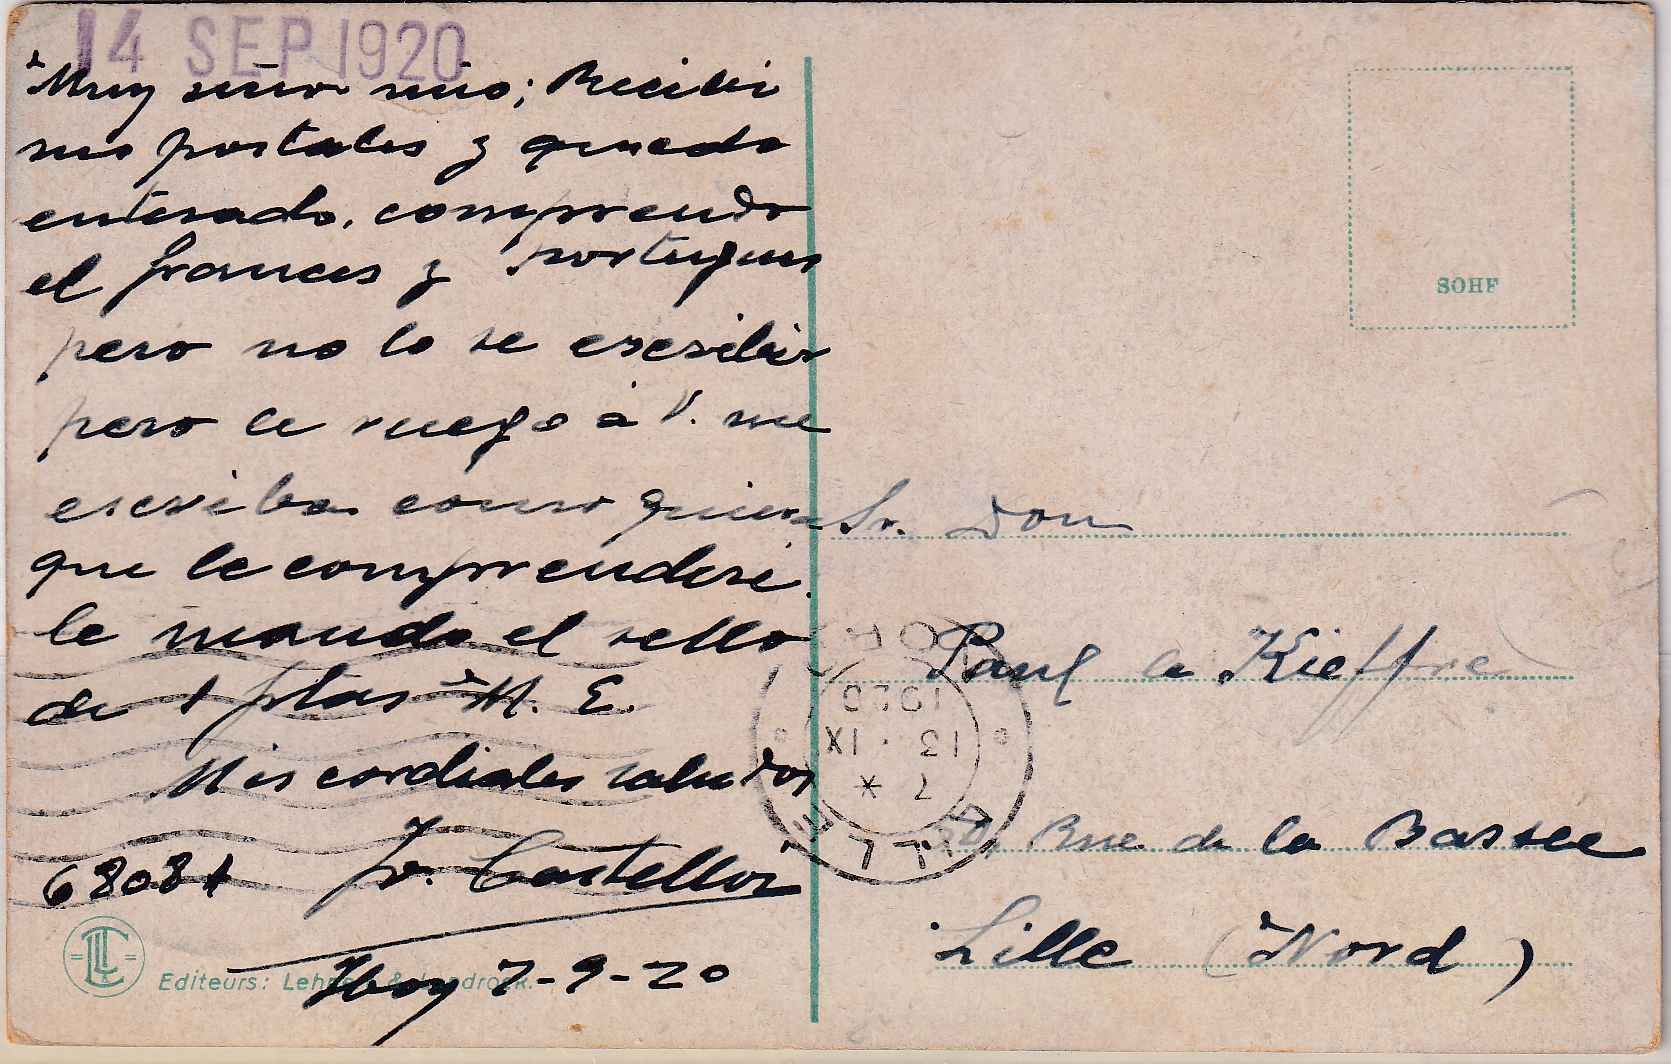 14 SEP 1920
Muy señor mio; Recibi
sus postales y quedo
enterado, comprendo
el frances y portugues
pero no lo se escribir
pero le ruego á V. me
escriba como quiera
que le comprenderé.
le mando el sello
de 1 ptas H. E.
Mis cordiales saludos
68081 Castellvi
7-9-20
Editeurs: Lehnert & Landrock.
SOHF
Sr. Don
Paul le Kieffre
Rue de la Bassee
Lille (Nord)
LILLE
7 *
13 · IX
1920